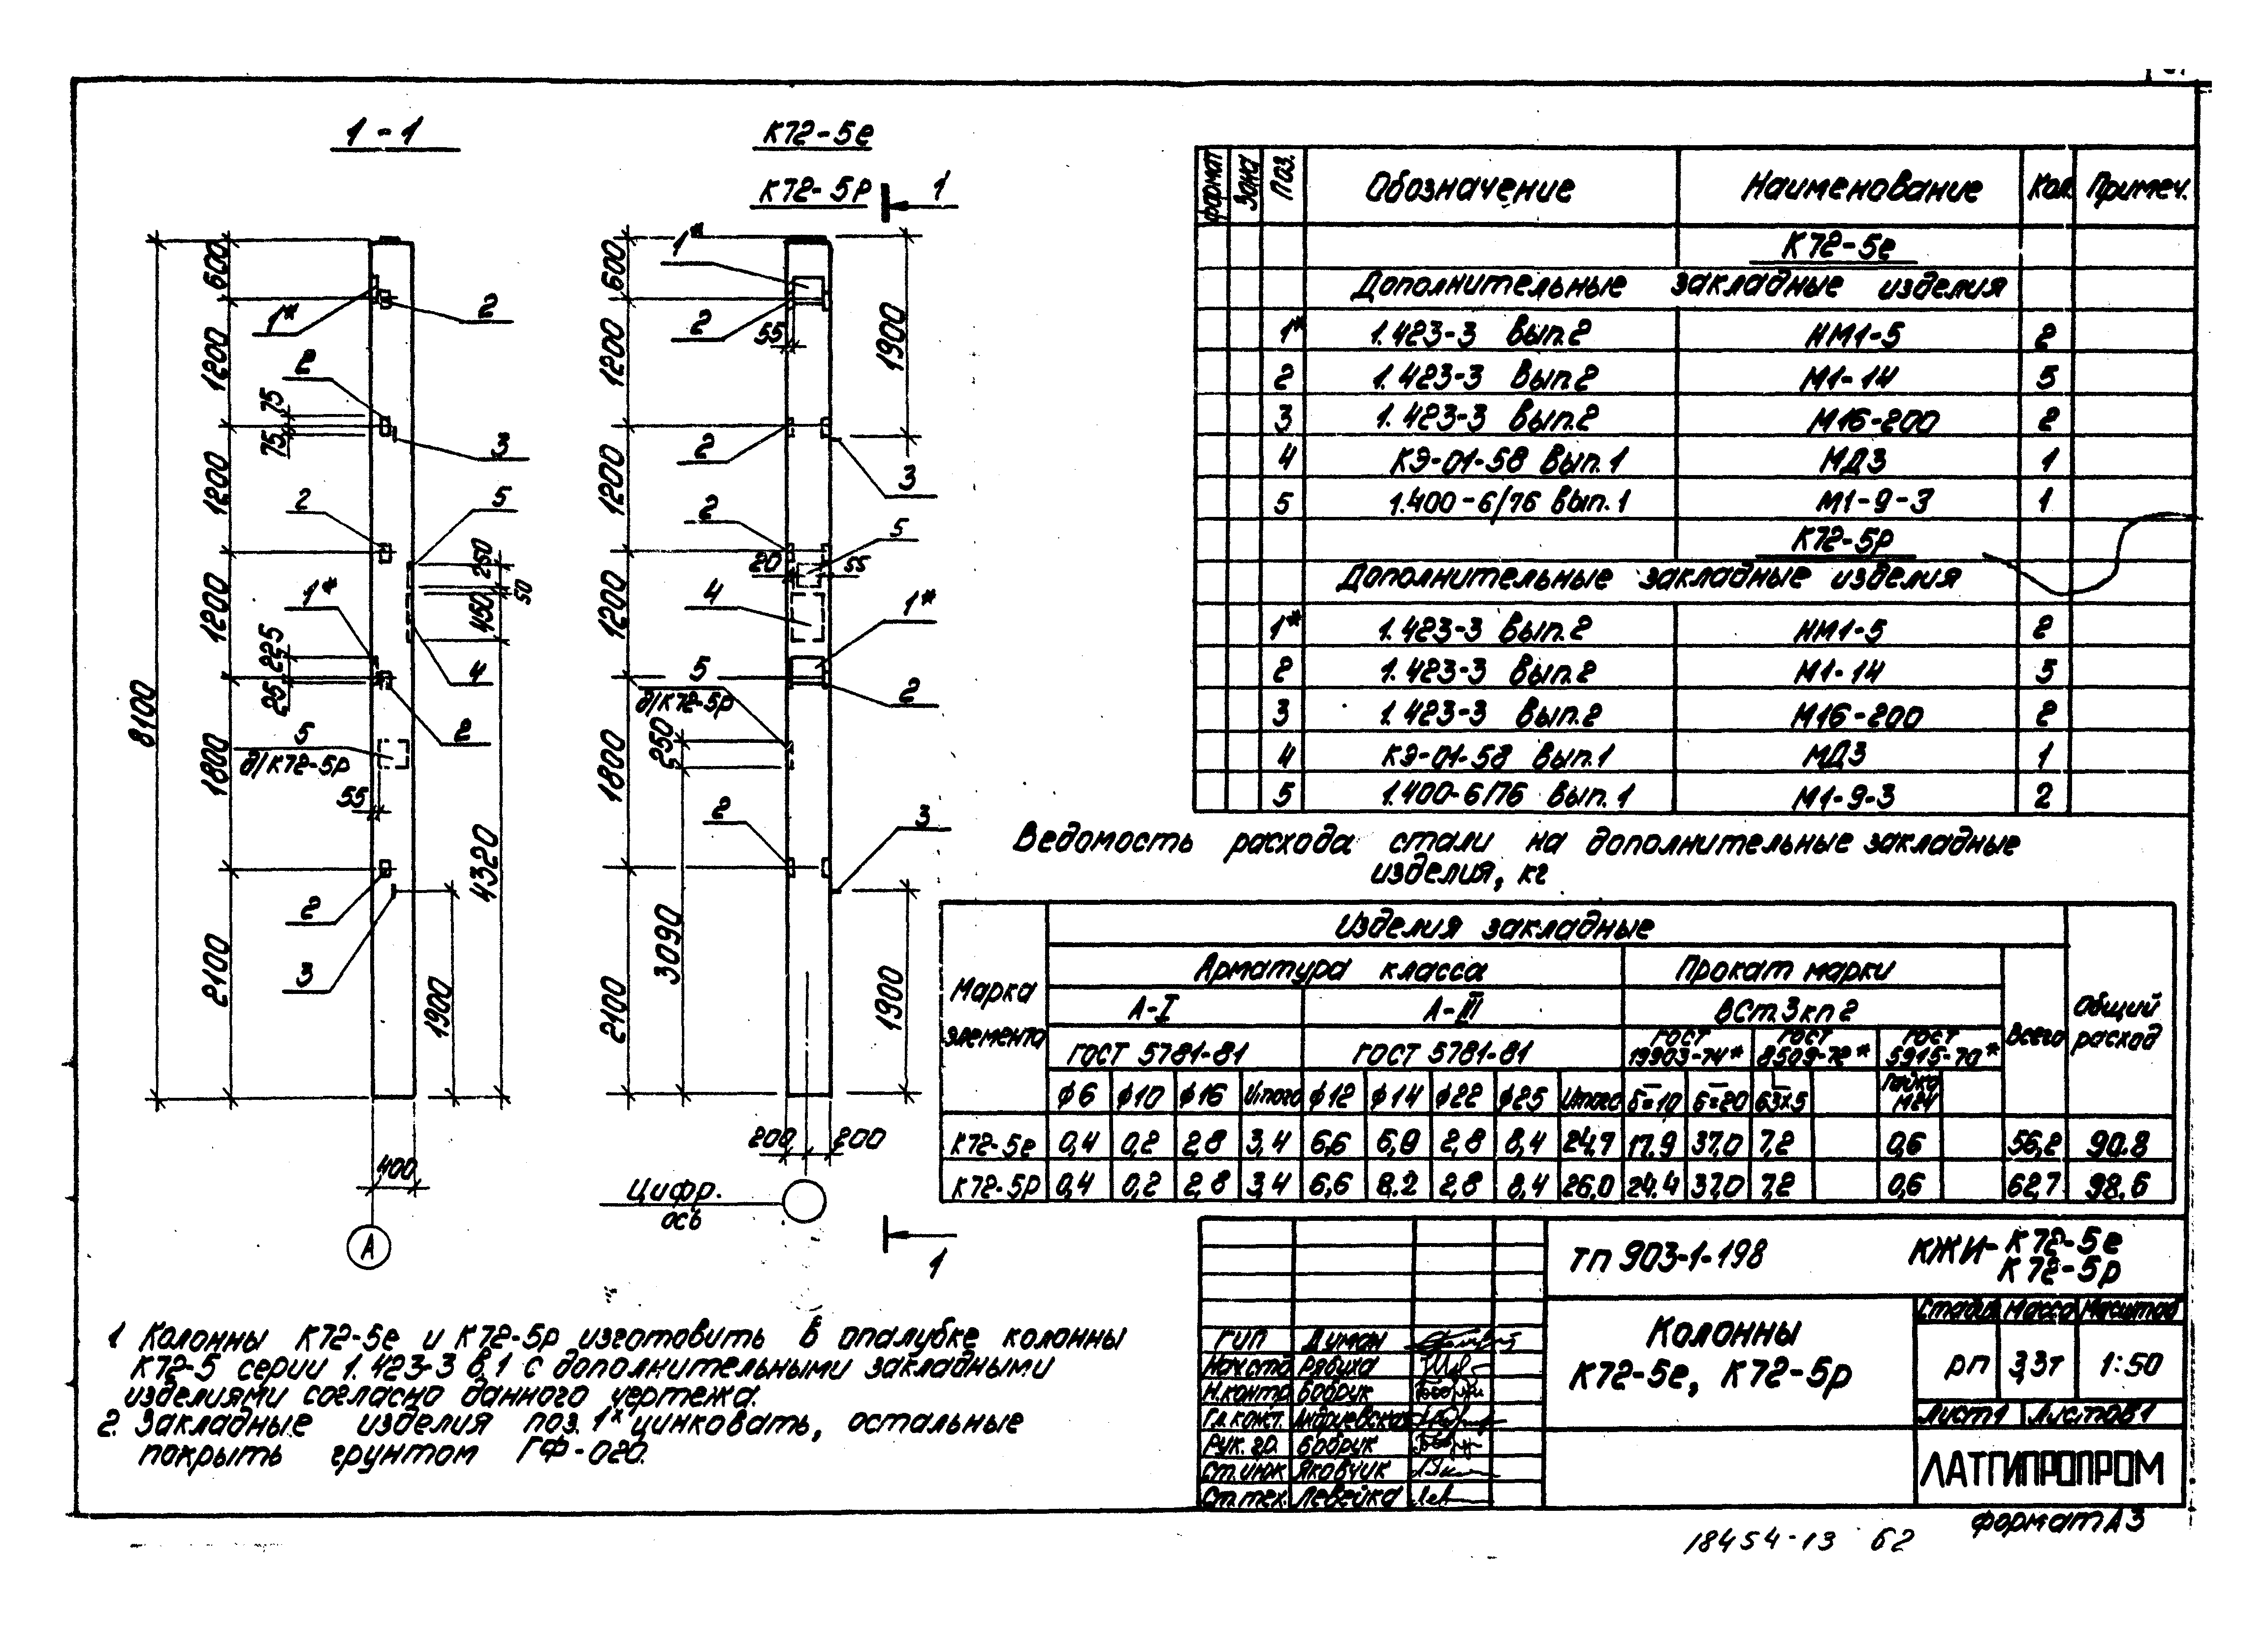 1-1
К72-5е
К72-5р
1
600
1200
75
75
1200
1200
225
25
1800
2100
8100
1*
2
2
3
2
5
250
50
450
1*
4
2
5
д/К72-5р
55
2
3
1900
4320
400
А
600
1200
1200
1200
1800
2100
1*
2
55
1900
2
3
2
5
20
55
4
1*
5
д/К72-5р
2
250
3090
2
3
1900
200
200
Цифр.
ось
1
формат Зона Поз. Обозначение Наименование Кол. Примеч.
К72-5е
Дополнительные закладные изделия
1* 1.423-3 Вып.2 НМ1-5 2
2 1.423-3 Вып.2 М1-14 5
3 1.423-3 Вып.2 М16-200 2
4 КЭ-01-58 Вып.1 МД3 1
5 1.400-6/76 Вып.1 М1-9-3 1
К72-5р
Дополнительные закладные изделия
1* 1.423-3 Вып.2 НМ1-5 2
2 1.423-3 Вып.2 М1-14 5
3 1.423-3 Вып.2 М16-200 2
4 КЭ-01-58 Вып.1 МД3 1
5 1.400-6/76 Вып.1 М1-9-3 2
Ведомость расхода стали на дополнительные закладные
изделия, кг
Марка элемента Изделия закладные Общий расход
Арматура класса Прокат марки Всего
А-I А-III ВСт.3кп2
ГОСТ 5781-81 ГОСТ 5781-81 ГОСТ 19903-74* ГОСТ 8509-72* ГОСТ 5915-70*
ф6 ф10 ф16 Итого ф12 ф14 ф22 ф25 Итого б=10 б=20 63х5 Гайка М24
К72-5е 0,4 0,2 2,8 3,4 6,6 6,9 2,8 8,4 24,7 17.9 37,0 7,2 0,6 56,2 90.8
К72-5р 0,4 0,2 2,8 3,4 6,6 8.2 2,8 8,4 26,0 24.4 37,0 7,2 0,6 62,7 98.6
1 Колонны К72-5е и К72-5р изготовить в опалубке колонны
К72-5 серии 1.423-3 в.1 с дополнительными закладными
изделиями согласно данного чертежа.
2. Закладные изделия поз. 1* цинковать, остальные
покрыть грунтом ГФ-020.
ТП 903-1-198 КЖИ- К72-5е
К72-5р
Колонны
К72-5е, К72-5р
Стадия Масса Масштаб
РП 3,3т 1:50
Лист 1 Листов 1
ЛАТГИПРОПРОМ
ГИП Диман
Нач.отд Рябуха
Н.контр. Бобрик
Гл.конст. Андриевская
Рук. гр. Бобрик
Ст. инж Яковчик
Ст.тех. Левейка
формат А3
18454-13 62